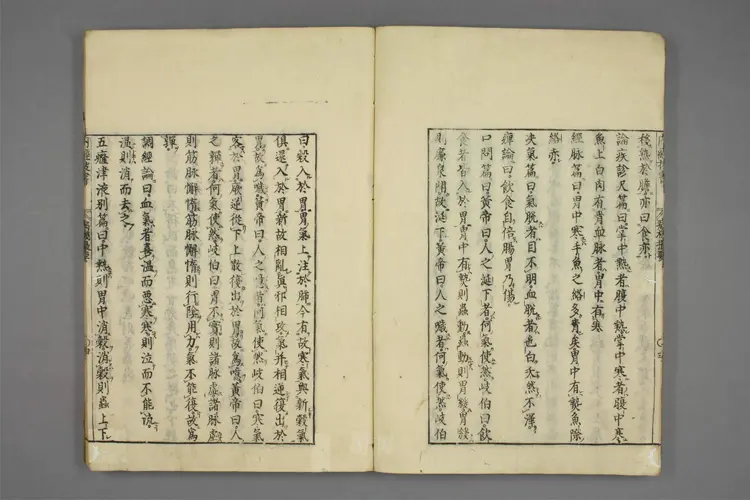 移熱於膽亦曰食亦
論疾診尺篇曰掌中熱者腹中熱掌中寒者腹中寒
魚上白肉有青血脈者胃中有寒
經脈篇曰胃中寒手魚之絡多青矣胃中有熱魚際
絡赤
決氣篇曰氣脫者目不明血脫者色白夭然不澤
痺論曰飲食自倍腸胃乃傷
口問篇曰黃帝曰人之涎下者何氣使然岐伯曰飲
食者皆入於胃胃中有熱則蟲動蟲動則胃緩胃緩
則廉泉開故涎下黃帝曰人之噦者何氣使然岐伯
曰穀入於胃胃氣上注於肺今有故寒氣與新穀氣
俱還入於胃新故相亂真邪相攻氣并相逆復出於
胃故為噦黃帝曰人之噫者何氣使然岐伯曰寒氣
客於胃厥逆從下上散復出於胃故為噫黃帝曰人
之嚲者何氣使然岐伯曰胃不實則諸脈虛諸脈虛
則筋脈懈惰筋脈懈惰則行陰用力氣不能復故為
嚲
調經論曰血氣者喜溫而惡寒寒則泣而不能流
溫則消而去之
五癃津液別篇曰中熱則胃中消穀消穀則蟲上下